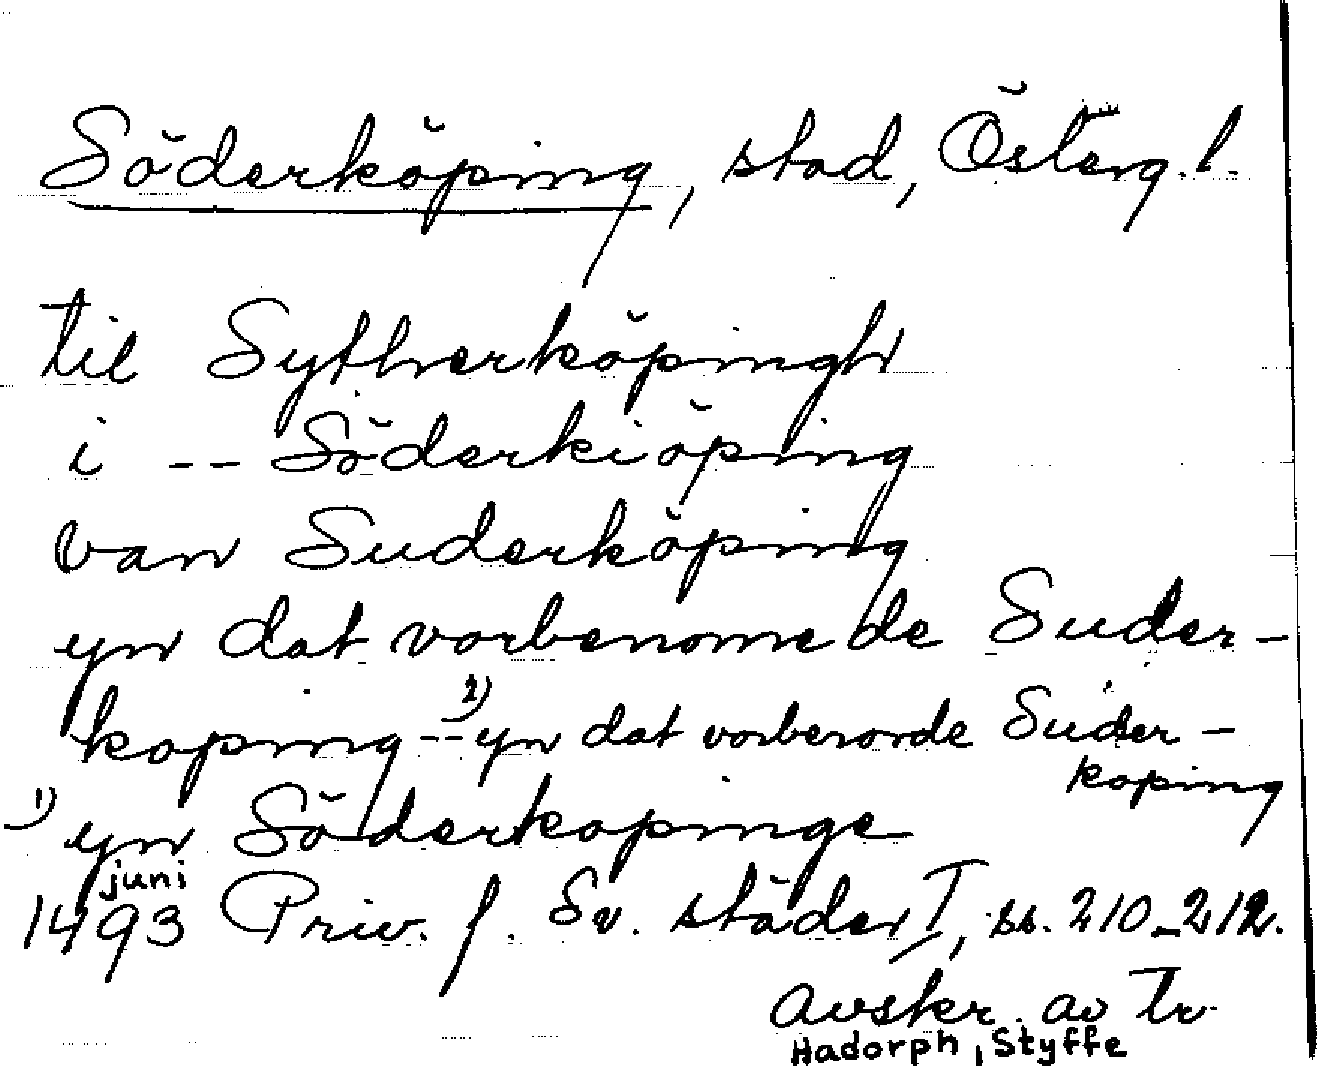 Söderköping, stad, Österg.l.
til Sytherköpingh
i -- Söderkiöping
van Suderköping
yn dat vorbenomede Suder-
koping -- 2) yn dat vorberorde Suder-
koping
1) yn Söderkopinge
juni
1493 Priv. f. Sv. städer I, ss. 210-212.
Avskr. av Tr.
Hadorph, Styffe